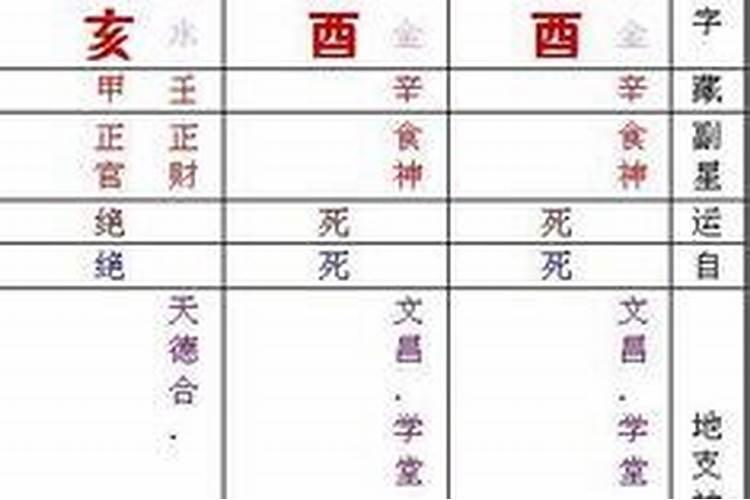 亥 水 酉 金 酉 金 字
甲 壬 辛 辛 藏
正官 正财 食神 食神 副星
绝 死 死 运
绝 死 死 自
天德合. 文昌.学堂 文昌.学堂 地支